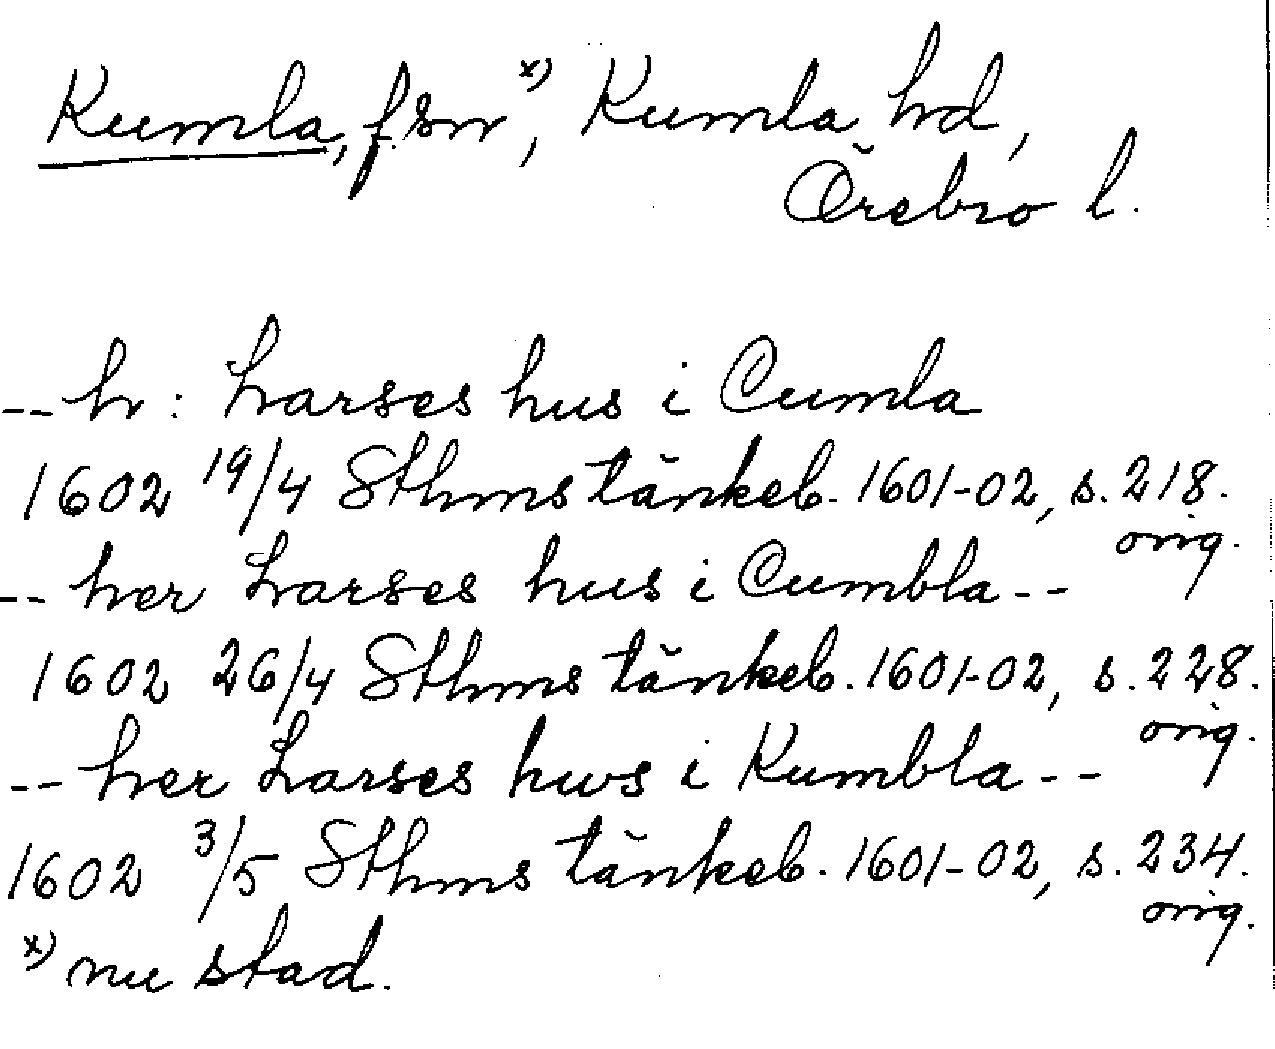 Kumla, f. sn x), Kumla hd,
Örebro l.
-- hr: Larses hus i Cumla
1602 19/4 Sthms tänkeb. 1601-02, s. 218.
orig.
-- her Larses hus i Cumbla --
1602 26/4 Sthms tänkeb. 1601-02, s. 228.
orig.
-- her Larses hws i Kumbla --
1602 3/5 Sthms tänkeb. 1601-02, s. 234.
orig.
x) nu stad.